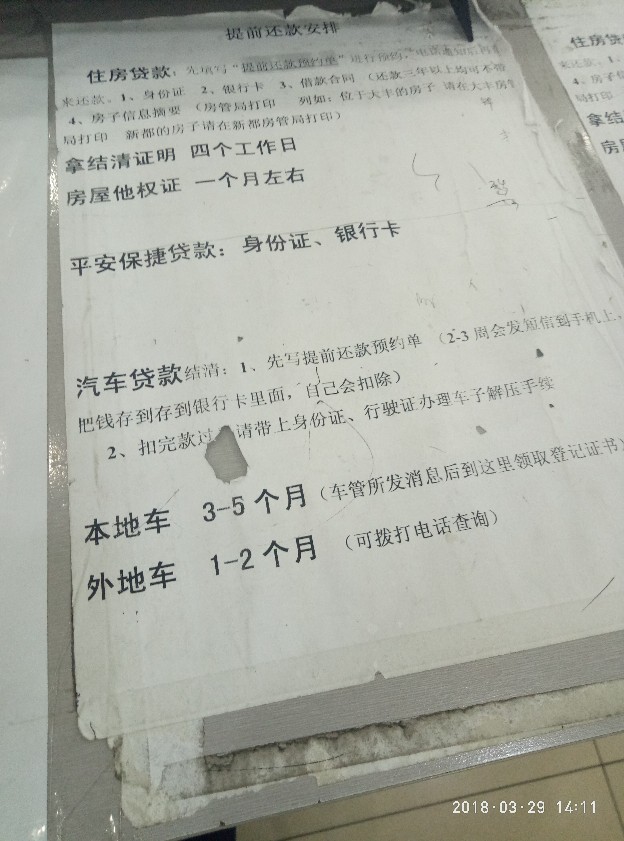 提前还款安排
住房贷款：先填写“提前还款预约单”进行预约，电话通知后再
来还款。1、身份证 2、银行卡 3、借款合同 （还款三年以上均可不带
4、房子信息摘要 （房管局打印 列如：位于大丰的房子 请在大丰房管
局打印 新都的房子请在新都房管局打印）
拿结清证明 四个工作日
房屋他权证 一个月左右
平安保捷贷款：身份证、银行卡
汽车贷款结清：1、先写提前还款预约单 （2-3 周会发短信到手机上，
把钱存到存到银行卡里面，自己会扣除）
2、扣完款过 请带上身份证、行驶证办理车子解压手续
本地车 3-5 个月（车管所发消息后到这里领取登记证书）
外地车 1-2 个月 （可拨打电话查询）
住房贷
来还款。1
4、房子信
局打印
拿结
房
2018·03·29 14:11